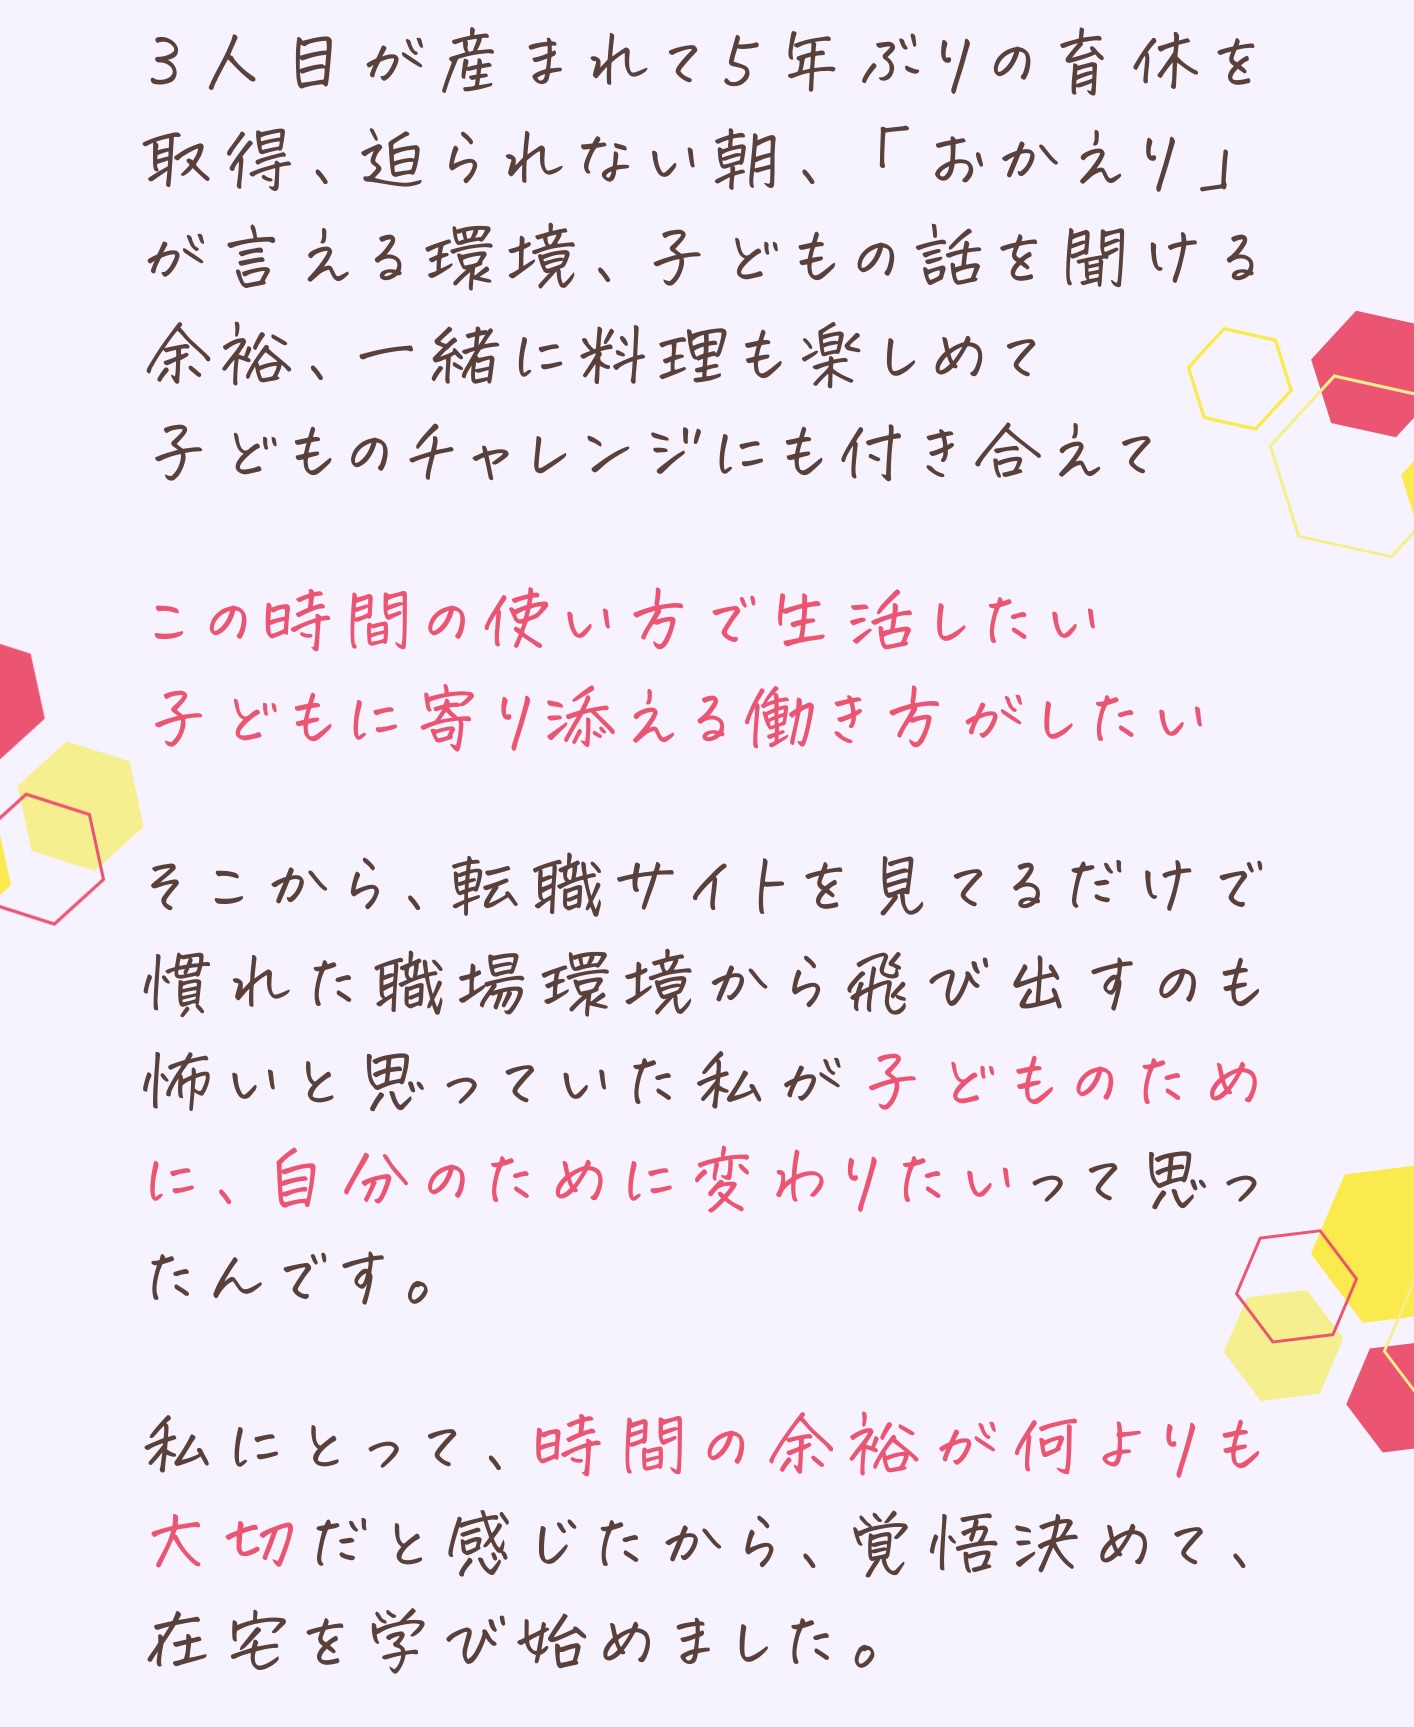 3人目が産まれて5年ぶりの育休を
取得、迫られない朝、「おかえり」
が言える環境、子どもの話を聞ける
余裕、一緒に料理も楽しめて
子どものチャレンジにも付き合えて
この時間の使い方で生活したい
子どもに寄り添える働き方がしたい
そこから、転職サイトを見てるだけで
慣れた職場環境から飛び出すのも
怖いと思っていた私が子どものため
に、自分のために変わりたいって思っ
たんです。
私にとって、時間の余裕が何よりも
大切だと感じたから、覚悟決めて、
在宅を学び始めました。